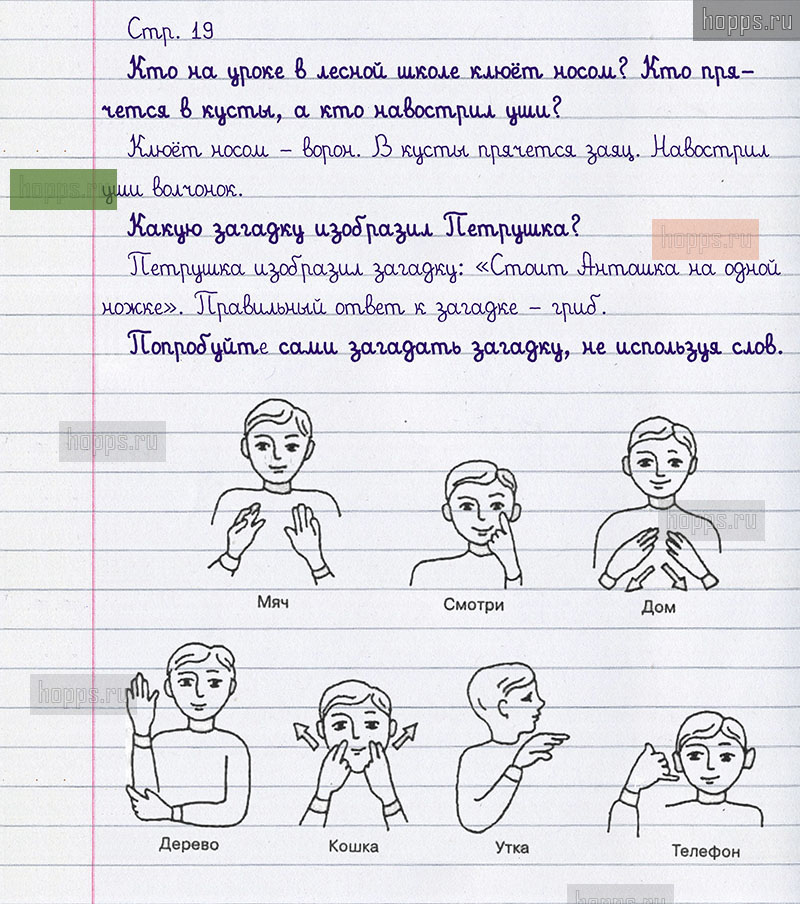 hopps.ru
Стр. 19
Кто на уроке в лесной школе клюёт носом? Кто пря-
чется в кусты, а кто навострил уши?
Клюёт носом – ворон. В кусты прячется заяц. Навострил
уши волчонок.
hopps.ru
Какую загадку изобразил Петрушка?
hopps.ru
Петрушка изобразил загадку: «Стоит Антошка на одной
ножке». Правильный ответ к загадке – гриб.
Попробуйте сами загадать загадку, не используя слов.
hopps.ru
hopps.ru
Мяч Смотри Дом
hopps.ru
Дерево Кошка Утка Телефон
hopps.ru